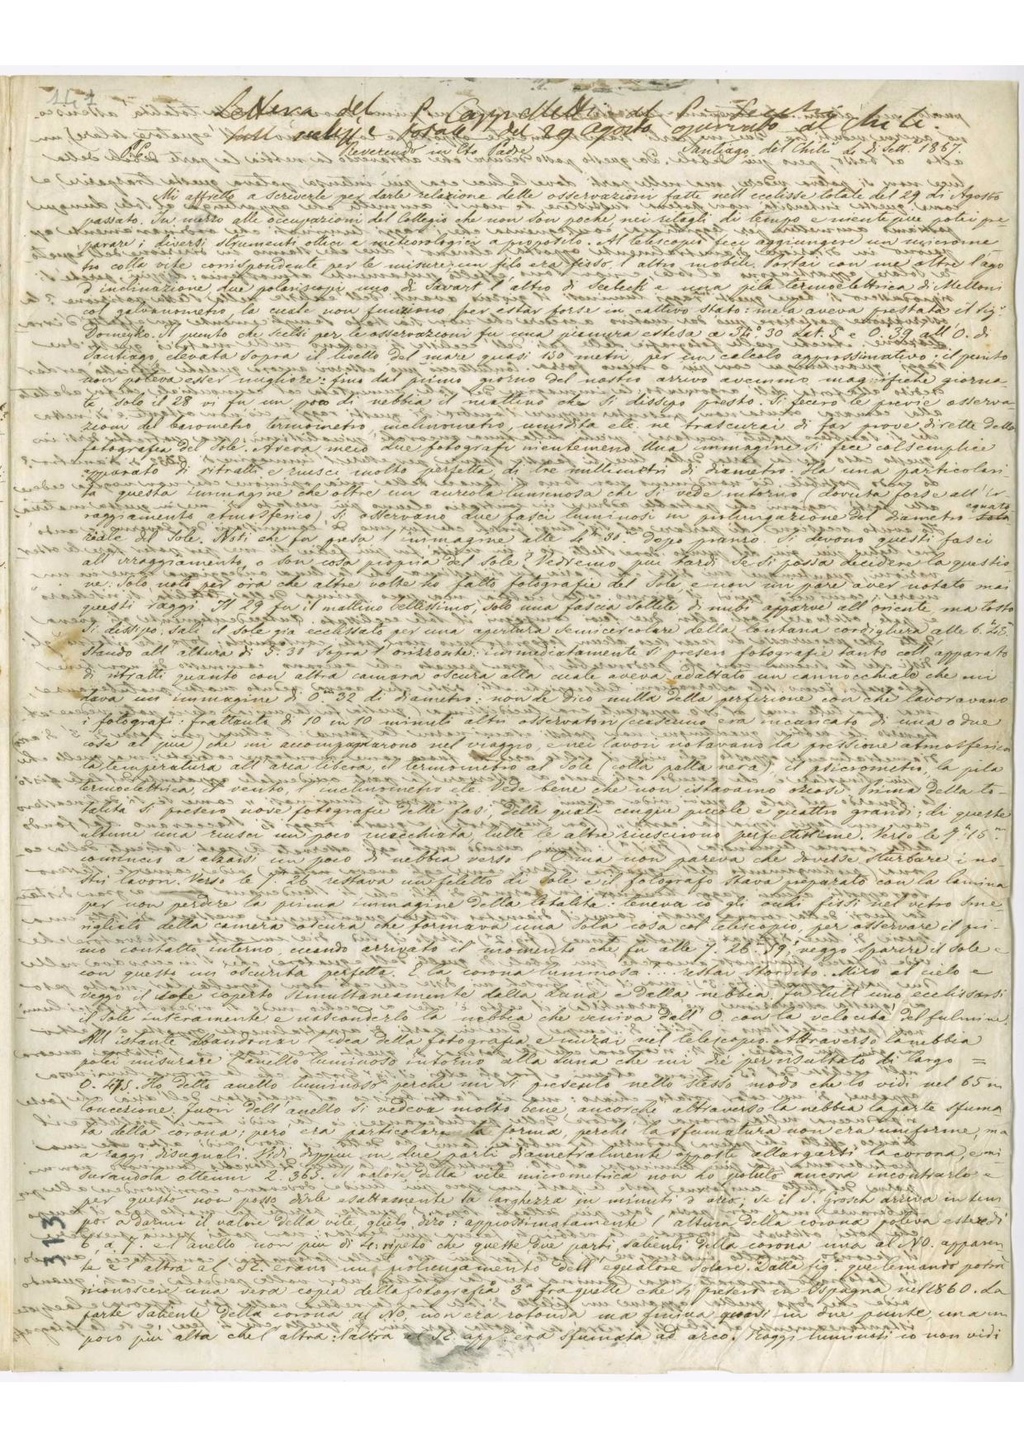 Lettera del P. Cappelletti al P. Secchi
sull' eclisse totale del 29 Agosto osservato al Chili
P.C. Reverendo in Cto Padre Santiago del Chilì li 1 Sett. 1867.
Mi affretto a scriverle per darle relazione delle osservazioni fatte nell' eclisse totale del 29 di Agosto
passato. In mezzo alle occupazioni del Collegio che non son poche nei ritagli di tempo e niente più potei pre-
parare i diversi strumenti ottici e meteorologici a proposito. Al telescopio feci aggiungere un microme-
tro colla vite corrispondente per le misure un filo era fisso, l'altro mobile; portai con me oltre l'ago
d'inclinazione due polariscopi uno di Savart l'altro di Seebeck e una pila termoelettrica di Melloni
col galvanometro, la quale non funzionò per esser forse in cattivo stato: me la aveva prestata il Sig.
Il punto che scelsi per le osservazioni fu una pianura estesa a 30 lat. S. 0. 39 all'O. di
Santiago, elevata sopra il livello del mare quasi 150 metri, per un calcolo approssimativo: il punto
non poteva esser migliore: fino dal primo giorno del nostro arrivo avemmo magnifiche giorna-
te solo il 28 vi fu un poco di nebbia il mattino che si dissipò presto. Si fecero le previe osserva-
zioni del barometro termometro inclinometro, umidità etc. ne trascurai di far prove dirette della
fotografia del Sole. Aveva meco due fotografi nientemeno. Una immagine si fece col semplice
apparato di ritratti e riuscì molto perfetta di tre millimetri di diametro. Ha una particolari-
tà questa immagine che oltre un aureola luminosa che si vede intorno (dovuta forse all' ir-
raggiamento atmosferico) si osservano due fasci luminosi in prolungazione del diametro equato-
riale del Sole. Noti che fu presa l'immagine alle 4h 30m dopo pranzo. Si devono questi fasci
all' irraggiamento, o son cosa propria del Sole? Vedremo più tardi se si possa decidere la questio-
ne. Solo noto per ora che altre volte ho fatto fotografie del Sole, e non mi pare aver notato mai
questi raggi. Il 29 fu il mattino bellissimo, solo una fascia sottile di nubi apparve all' oriente ma tosto
si dissipò. Salì il Sole già ecclissato per una apertura semicircolare della lontana cordigliera alle 6. 25
stando all' altura di 3. 30 sopra l'orizzonte: immediatamente si presero fotografie tanto coll' apparato
di ritratti quanto con altra camera oscura alla quale aveva adattato un cannocchiale che mi
dava un' immagine di 0m 32 di diametro: non le dico nulla della perfezione con che lavoravano
i fotografi: frattanto di 10 in 10 minuti altri osservatori (ciascuno era incaricato di una o due
cose al più) che mi accompagnarono nel viaggio, e nei lavori notavano la pressione atmosferica
la temperatura all' aria libera, il termometro al Sole (colla palla nera), il psicrometro, la pila
termoelettrica, il vento, l'inclinometro etc. Vede bene che non istavamo oziosi. Prima della to-
talità si presero nove fotografie delle fasi, delle quali cinque piccole e quattro grandi; di queste
ultime una riuscì un poco macchiata tutte le altre riuscirono perfettissime. Verso le 7h 15m
cominciò a alzarsi un poco di nebbia verso l'O. ma non pareva che dovesse sturbare i no-
stri lavori. Verso le 7 26 restava un filetto di Sole e il fotografo stava preparato con la lamina
per non perdere la prima immagine della totalità: teneva io gli occhi fissi nel vetro sme-
rigliato della camera oscura che formava una sola cosa col telescopio, per osservare il pri-
mo contatto interno, quando arrivato il momento che fu alle 7 26 59 veggo sparire il Sole e
con questo un oscurità perfetta. E la corona luminosa .... restai stordito. Miro al cielo e
veggo il Sole coperto simultaneamente dalla Luna e dalla nebbia, fu tutt' uno ecclissarsi
il Sole interamente e nasconderlo la nebbia che veniva dall' O. con la velocità del fulmine.
All' istante abbandonai l'idea della fotografia e mirai nel telescopio. Attraverso la nebbia
potei misurare l'anello luminoso intorno alla Luna che mi diè per risultato di largo =
0. 475. Ho detto anello luminoso perchè mi si presentò nello stesso modo che lo vidi nel 65 in
Concezione: fuori dell' anello si vedeva molto bene, ancorchè attraverso la nebbia la parte sfuma-
ta della corona; però era particolare la forma, perchè la sfumatura non era uniforme, ma
a raggi disuguali. Vidi dippiù in due parti diametralmente opposte allargarsi la corona, e mi-
surandola ottenni 2. 365. Il valore della vite micrometrica non ho potuto ancora incontrarlo e
per questo non posso dirle esattamente la larghezza in minuti d'arco; se il S. Grosch arriva in tem-
po a darmi il valore della vite, glielo dirò: approssimatamente l'altura della corona poteva essere di
6' a 7' e l'anello non più di 4: ripeto che queste due parti salienti della corona una al NO. apparen-
te e l'altra al SE. erano un prolungamento dell' equatore solare. Dalla fig. che le mando potrà
riconoscere una vera copia della fotografia 3a fra quelle che si presero in Ispagna nel 1860. La
parte saliente della corona al NO non era rotonda ma finiva quasi in due punte una un
poco più alta che l'altra: l'altra al SE. era sfumata ad arco. Raggi luminosi io non vidi
313